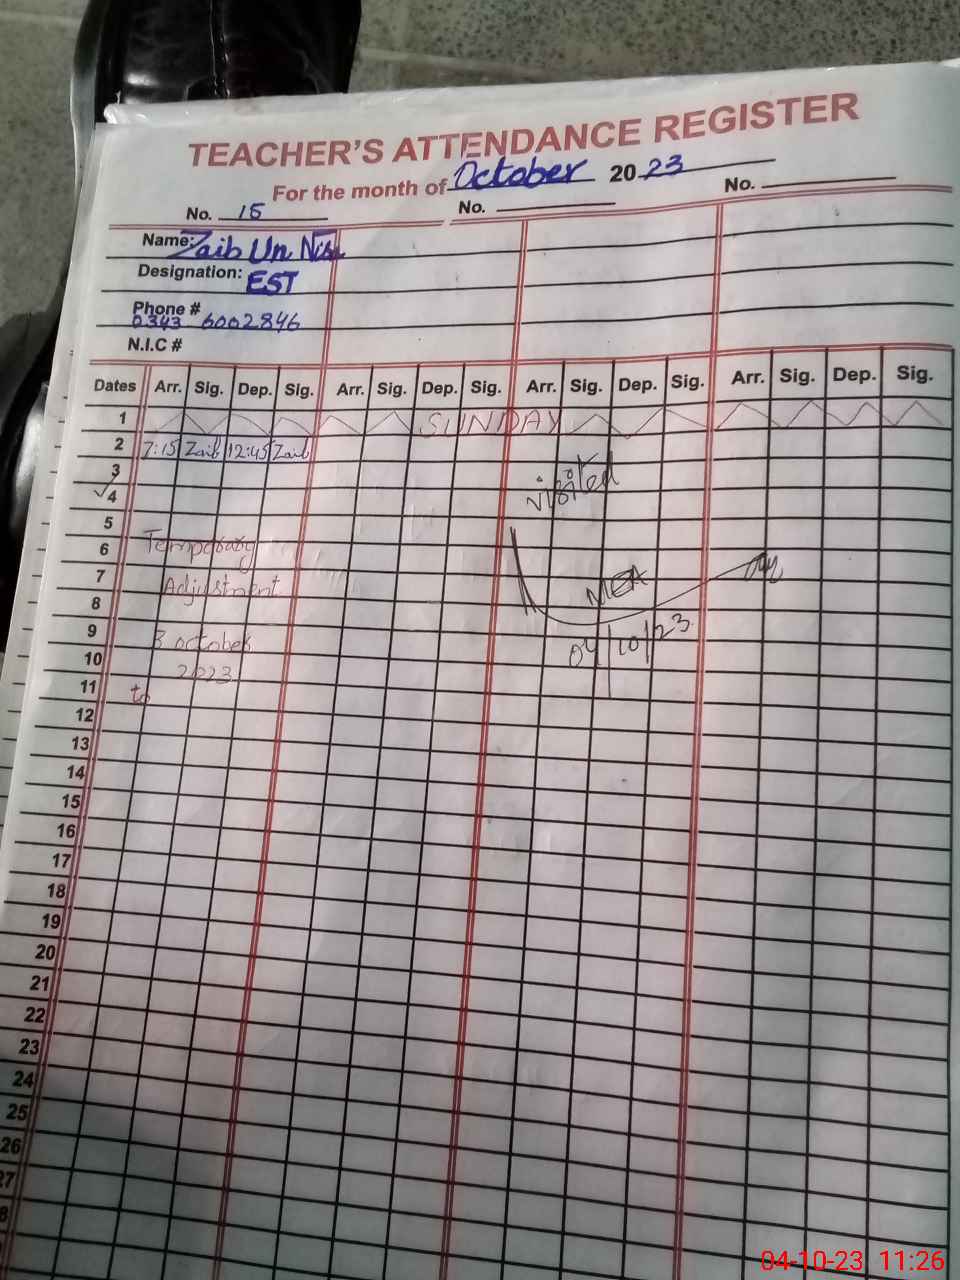 TEACHER'S ATTENDANCE REGISTER
For the month of October 2023
No. 15 No. No.
Name: Zaib Un Nisa
Designation: EST
Phone #
0343 6002846
N.I.C #
Dates Arr. Sig. Dep. Sig. Arr. Sig. Dep. Sig. Arr. Sig. Dep. Sig. Arr. Sig. Dep. Sig.
1 SUNDAY
2 7:15 Zaib 12:45 Zaib
3
4
visited
5
6 Temporary
7 Adjustment
MEA
8
9 3 october
04/10/23
10 2023
11 to
12
13
14
15
16
17
18
19
20
21
22
23
24
25
26
27
8
04-10-23 11:26